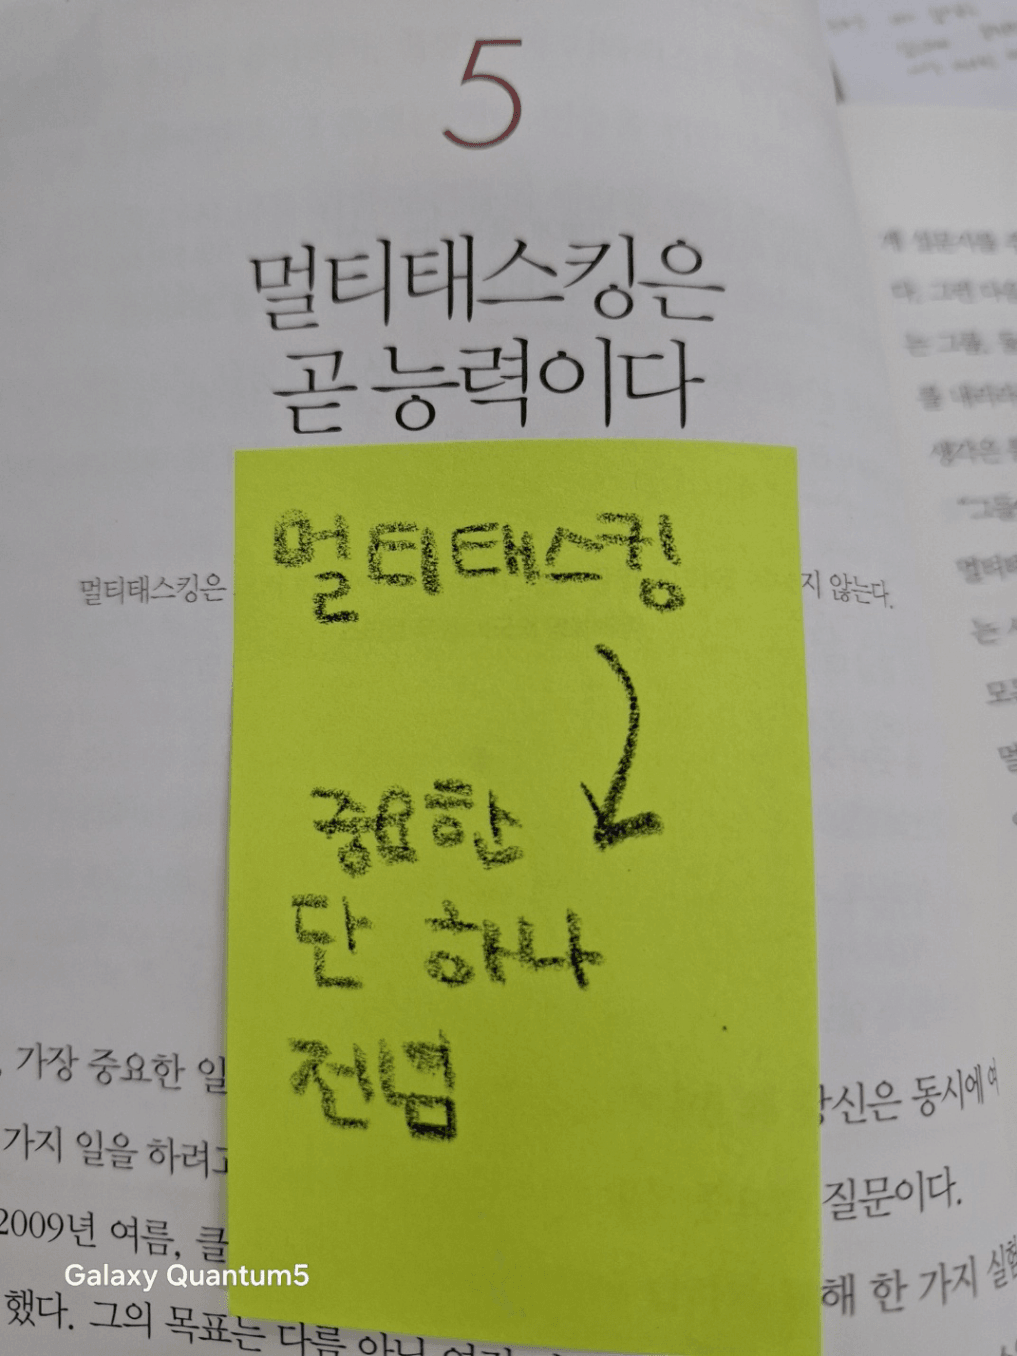 5
멀티태스킹은
곧 능력이다
멀티태스킹
멀티태스킹은
지 않는다.
중요한
단 하나
전념
가장 중요한 일
당신은 동시에 여
가지 일을 하려고
질문이다.
2009년 여름, 클
해 한 가지 실험
했다. 그의 목표는 다름 아닌
게 설문지를
다. 그런 다음
는 그들,
를 내리라
생각은
"그들
멀티태
는
모든
멀
Galaxy Quantum5